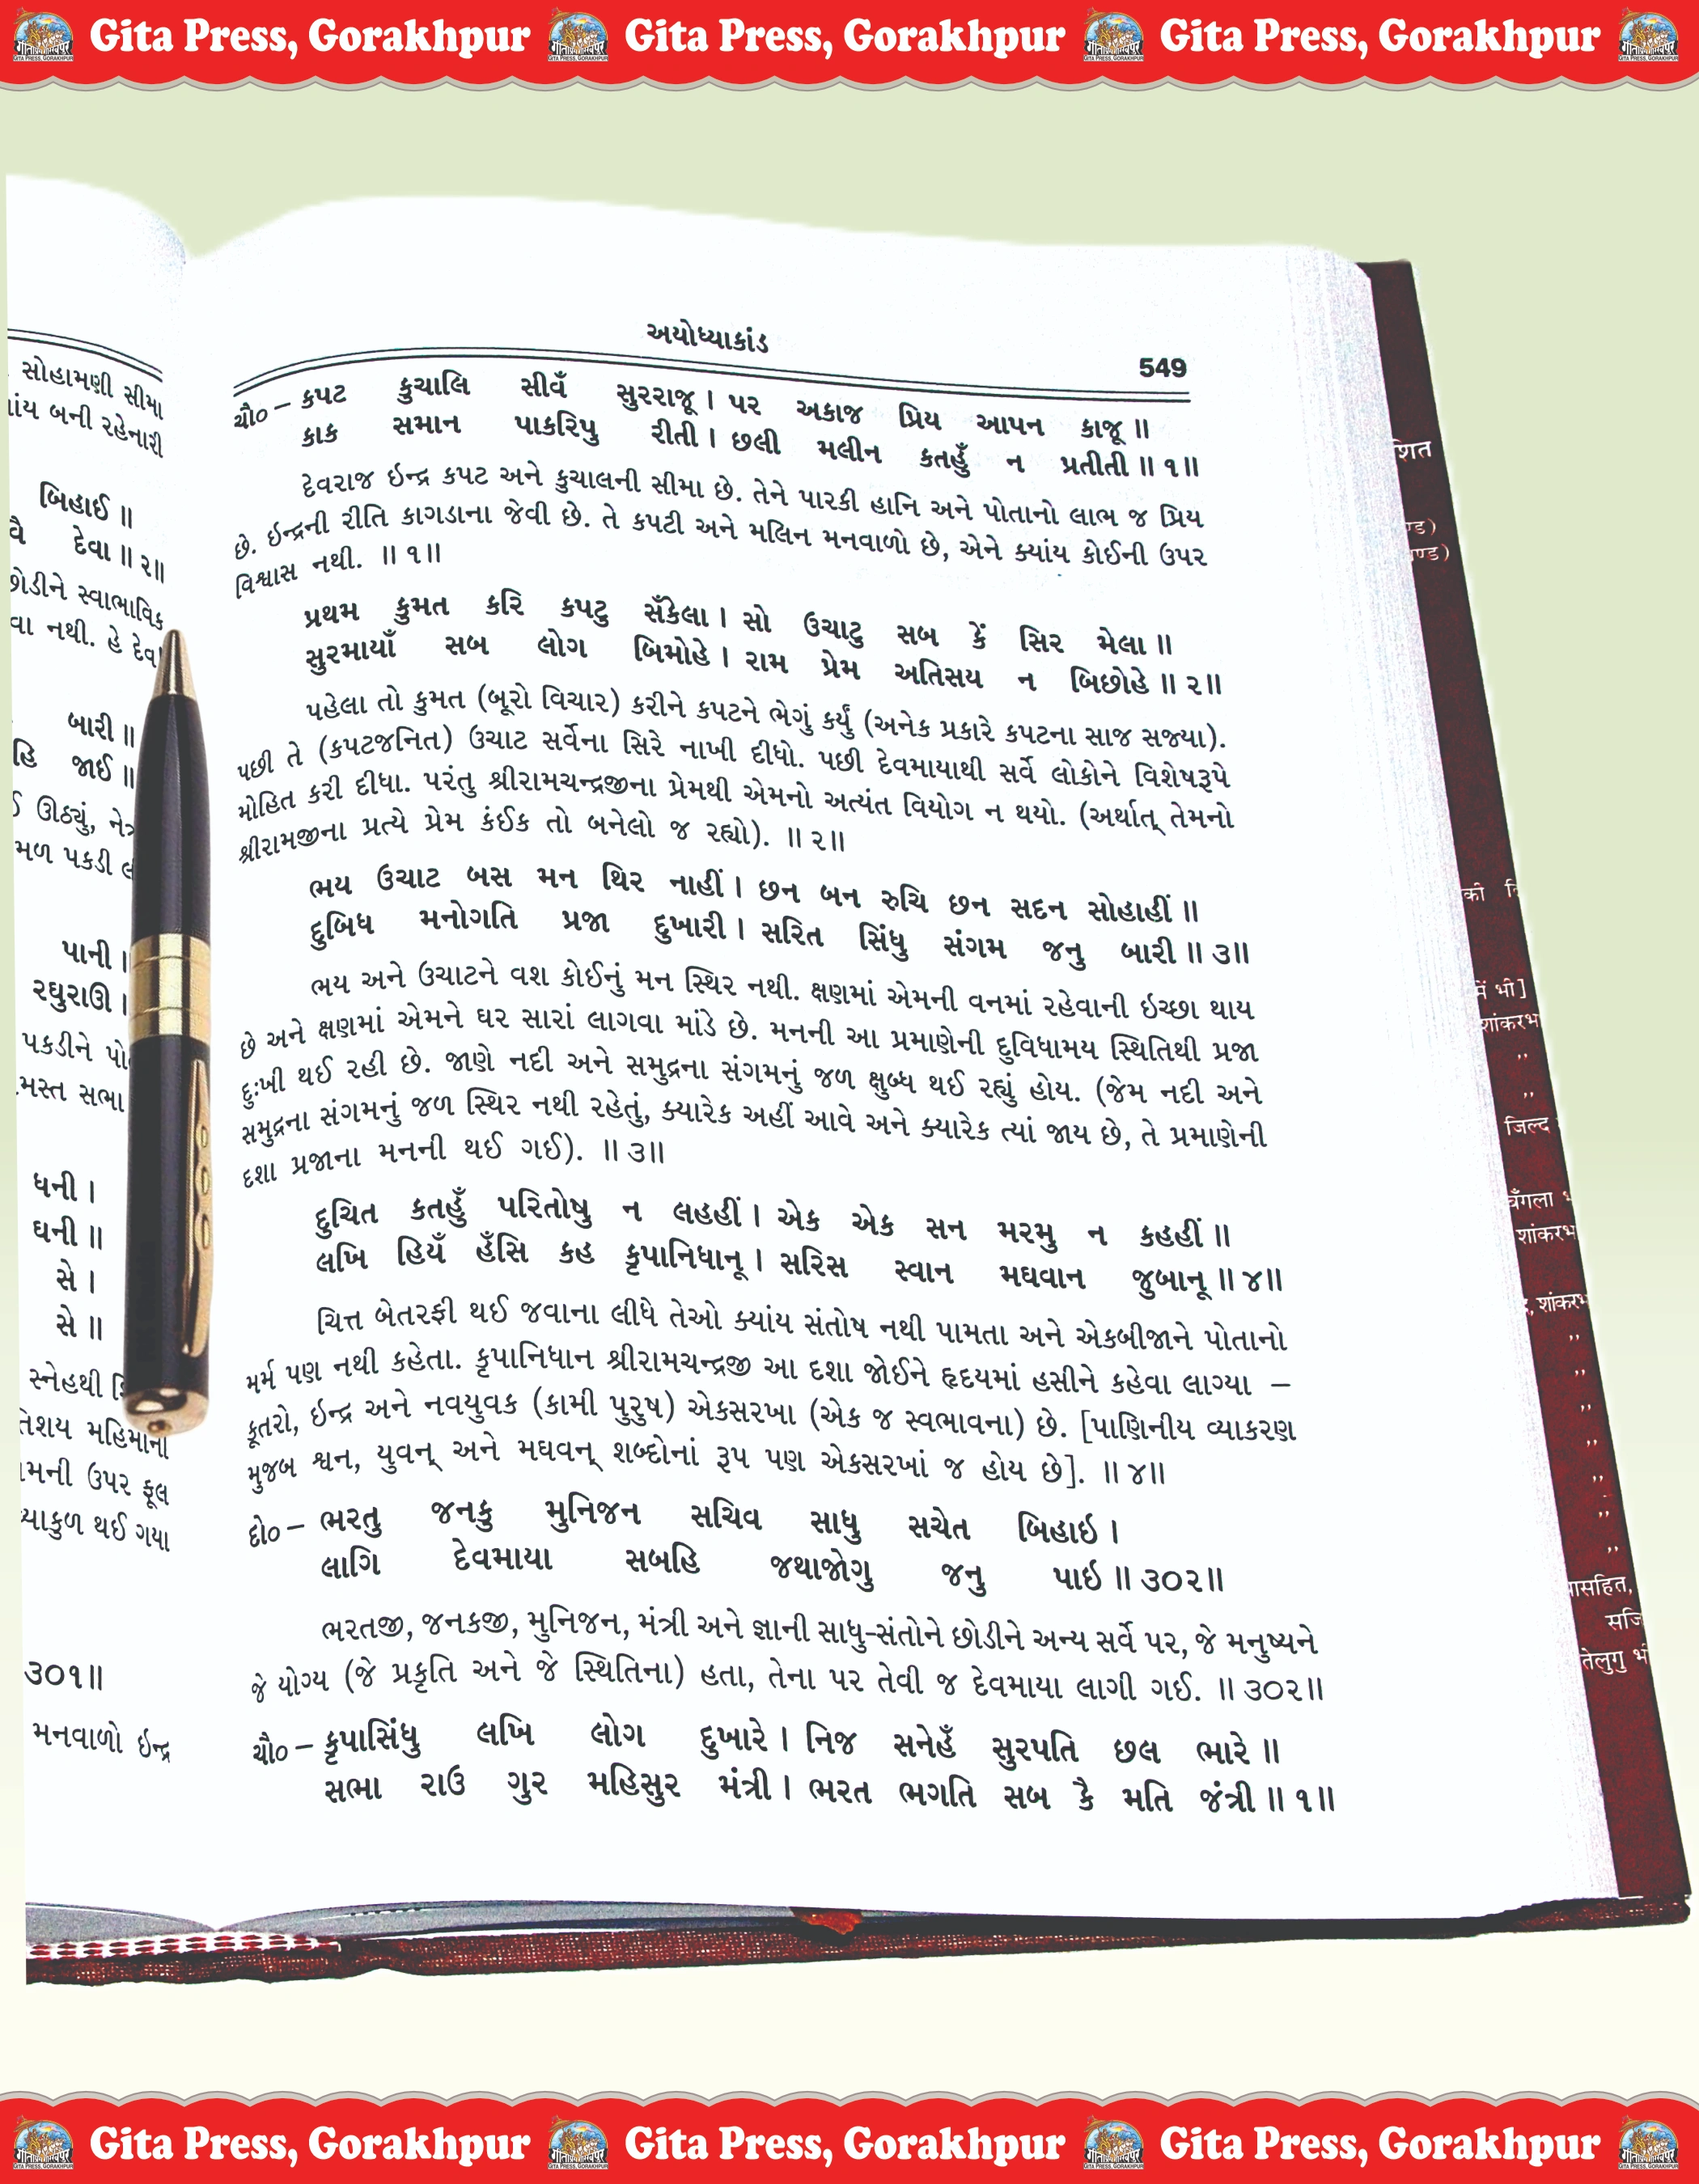 Gita Press, Gorakhpur Gita Press, Gorakhpur Gita Press, Gorakhpur
સોહામણી સીમા
બની રહેનારી
બિહાઈ ॥
દેવા ॥ ૨॥
સ્વાભાવિક
નથી. હે
બારી ॥
જાઈ ॥
ઊઠ્યું,
પકડી
પાની ।
રઘુરાઊ ।
પકડીને
સભા
ધની ।
ઘની ॥
સે ।
સે ॥
સ્નેહથી
મહિમાના
ઉપર ફૂલ
થઈ ગયા
૩૦૧॥
મનવાળો ઇન્દ્ર
અયોધ્યાકાંડ 549
ચૌ૦ – કપટ કુચાલિ સીવઁ સુરરાજૂ । પર અકાજ પ્રિય આપન કાજૂ ॥
કાક સમાન પાકરિપુ રીતી । છલી મલીન કતહુઁ ન પ્રતીતી ॥ ૧॥
દેવરાજ ઇન્દ્ર કપટ અને કુચાલની સીમા છે. તેને પારકી હાનિ અને પોતાનો લાભ જ પ્રિય
છે. ઇન્દ્રની રીતિ કાગડાના જેવી છે. તે કપટી અને મલિન મનવાળો છે, એને ક્યાંય કોઈની ઉપર
વિશ્વાસ નથી. ॥ ૧॥
પ્રથમ કુમત કરિ કપટુ સઁકેલા । સો ઉચાટુ સબ કેં સિર મેલા ॥
સુરમાયાઁ સબ લોગ બિમોહે । રામ પ્રેમ અતિસય ન બિછોહે ॥ ૨॥
પહેલા તો કુમત (બૂરો વિચાર) કરીને કપટને ભેગું કર્યું (અનેક પ્રકારે કપટના સાજ સજ્યા).
પછી તે (કપટજનિત) ઉચાટ સર્વેના સિરે નાખી દીધો. પછી દેવમાયાથી સર્વે લોકોને વિશેષરૂપે
મોહિત કરી દીધા. પરંતુ શ્રીરામચન્દ્રજીના પ્રેમથી એમનો અત્યંત વિયોગ ન થયો. (અર્થાત્ તેમનો
શ્રીરામજીના પ્રત્યે પ્રેમ કંઈક તો બનેલો જ રહ્યો). ॥ ૨॥
ભય ઉચાટ બસ મન થિર નાહીં । છન બન રુચિ છન સદન સોહાહીં ॥
દુબિધ મનોગતિ પ્રજા દુખારી । સરિત સિંધુ સંગમ જનુ બારી ॥ ૩॥
ભય અને ઉચાટને વશ કોઈનું મન સ્થિર નથી. ક્ષણમાં એમની વનમાં રહેવાની ઇચ્છા થાય
છે અને ક્ષણમાં એમને ઘર સારાં લાગવા માંડે છે. મનની આ પ્રમાણેની દુવિધામય સ્થિતિથી પ્રજા
દુઃખી થઈ રહી છે. જાણે નદી અને સમુદ્રના સંગમનું જળ ક્ષુબ્ધ થઈ રહ્યું હોય. (જેમ નદી અને
સમુદ્રના સંગમનું જળ સ્થિર નથી રહેતું, ક્યારેક અહીં આવે અને ક્યારેક ત્યાં જાય છે, તે પ્રમાણેની
દશા પ્રજાના મનની થઈ ગઈ). ॥ ૩॥
દુચિત કતહુઁ પરિતોષુ ન લહહીં । એક એક સન મરમુ ન કહહીં ॥
લખિ હિયઁ હઁસિ કહ કૃપાનિધાનૂ । સરિસ સ્વાન મઘવાન જુબાનૂ ॥ ૪॥
ચિત્ત બેતરફી થઈ જવાના લીધે તેઓ ક્યાંય સંતોષ નથી પામતા અને એકબીજાને પોતાનો
મર્મ પણ નથી કહેતા. કૃપાનિધાન શ્રીરામચન્દ્રજી આ દશા જોઈને હૃદયમાં હસીને કહેવા લાગ્યા –
કૂતરો, ઇન્દ્ર અને નવયુવક (કામી પુરુષ) એકસરખા (એક જ સ્વભાવના) છે. [પાણિનીય વ્યાકરણ
મુજબ શ્વન, યુવન્ અને મઘવન્ શબ્દોનાં રૂપ પણ એકસરખાં જ હોય છે]. ॥ ૪॥
દો૦ – ભરતુ જનકુ મુનિજન સચિવ સાધુ સચેત બિહાઇ ।
લાગિ દેવમાયા સબહિ જથાજોગુ જનુ પાઇ ॥ ૩૦૨॥
ભરતજી, જનકજી, મુનિજન, મંત્રી અને જ્ઞાની સાધુ-સંતોને છોડીને અન્ય સર્વે પર, જે મનુષ્યને
જે યોગ્ય (જે પ્રકૃતિ અને જે સ્થિતિના) હતા, તેના પર તેવી જ દેવમાયા લાગી ગઈ. ॥ ૩૦૨॥
ચૌ૦ – કૃપાસિંધુ લખિ લોગ દુખારે । નિજ સનેહઁ સુરપતિ છલ ભારે ॥
સભા રાઉ ગુર મહિસુર મંત્રી । ભરત ભગતિ સબ કૈ મતિ જંત્રી ॥ ૧॥
की
में भी]
जिल्द
बँगला
तेलुगु
Gita Press, Gorakhpur Gita Press, Gorakhpur Gita Press, Gorakhpur